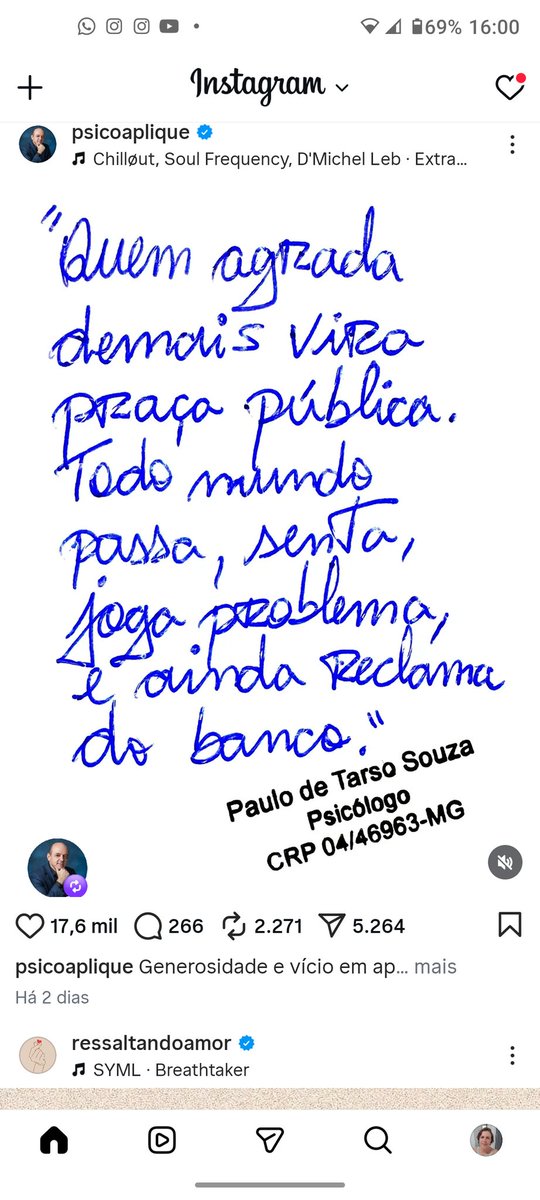 69% 16:00
Instagram
psicoaplique
Chilløut, Soul Frequency, D'Michel Leb · Extra...
"Quem agrada
demais vira
praça pública.
Todo mundo
passa, senta,
joga problema,
e ainda reclama
do banco."
Paulo de Tarso Souza
Psicólogo
CRP 04/46963-MG
17,6 mil 266 2.271 5.264
psicoaplique Generosidade e vício em ap... mais
Há 2 dias
ressaltandoamor
SYML · Breathtaker